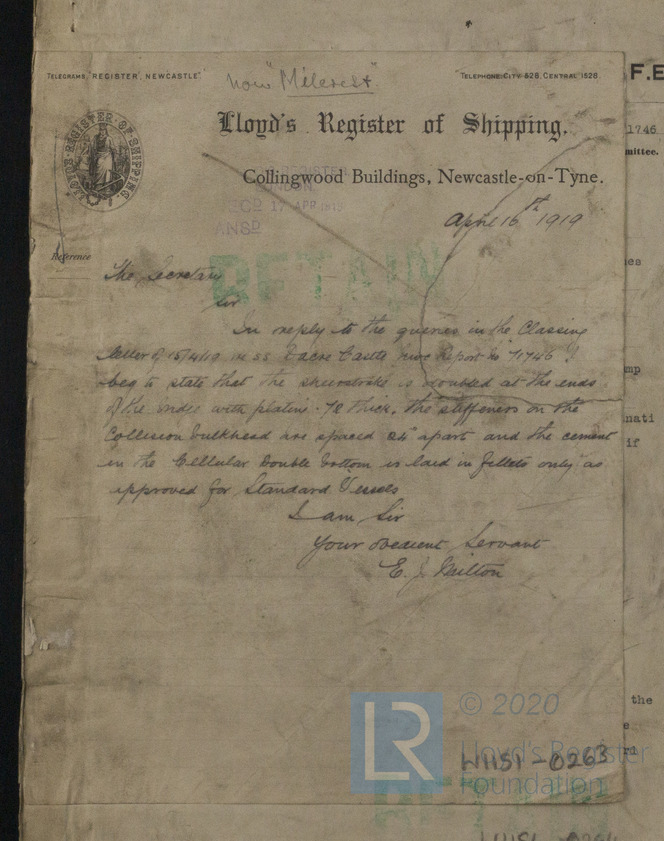 TELEGRAMS, "REGISTER, NEWCASTLE"
now "Milcrest"
TELEPHONE: CITY 828, CENTRAL 1528.
F.E
Lloyd's Register of Shipping.
1746
mittee.
LLOYD'S REGISTER OF SHIPPING
Collingwood Buildings, Newcastle-on-Tyne.
LONDON
REC'D 17 APR 1919
ANSD
April 16th 1919
Reference
RETAIN
The Secretary
Sir
In reply to the queries in the Classing
letter of 15/4/19 re SS Dacre Castle, Nwc Report No 71746 I
beg to state that the sheerstrake is doubled at the ends
of the bridge with plating .78 thick, the stiffeners on the
Collision bulkhead are spaced 24" apart and the cement
in the Cellular Double bottom is laid in fillets only as
approved for Standard Vessels
I am Sir
Your obedient Servant
E. J. Milton
mp
nati
if
the
© 2020
LR
Lloyd's Register
Foundation
W1151-0263
RETAIN